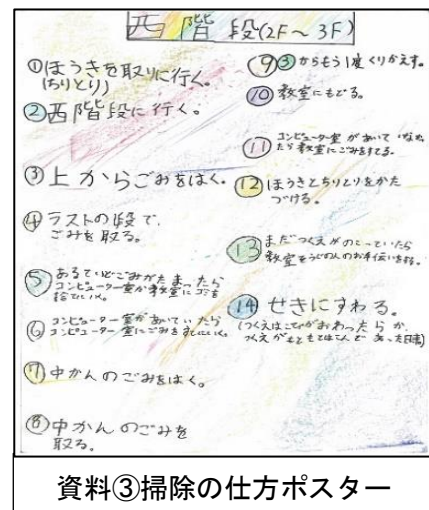 西階段(2F～3F)
①ほうきを取りに行く。
(ちりとり)
②西階段に行く。
③上からごみをはく。
④ラストの段で、
ごみを取る。
⑤あるていどごみがたまったら
コンピューター室か教室にゴミを
捨てにいく。
⑥コンピューター室があいていたら
コンピューター室にごみをすてにいく。
⑦中かんのごみをはく。
⑧中かんのごみを
取る。
⑨③からもう1度くりかえす。
⑩教室にもどる。
⑪コンピューター室があいていなかっ
たら教室にごみをすてる。
⑫ほうきとちりとりをかた
づける。
⑬まだつくえがのこっていたら
教室そうじの人のお手伝いをする。
⑭せきにすわる。
資料③掃除の仕方ポスター